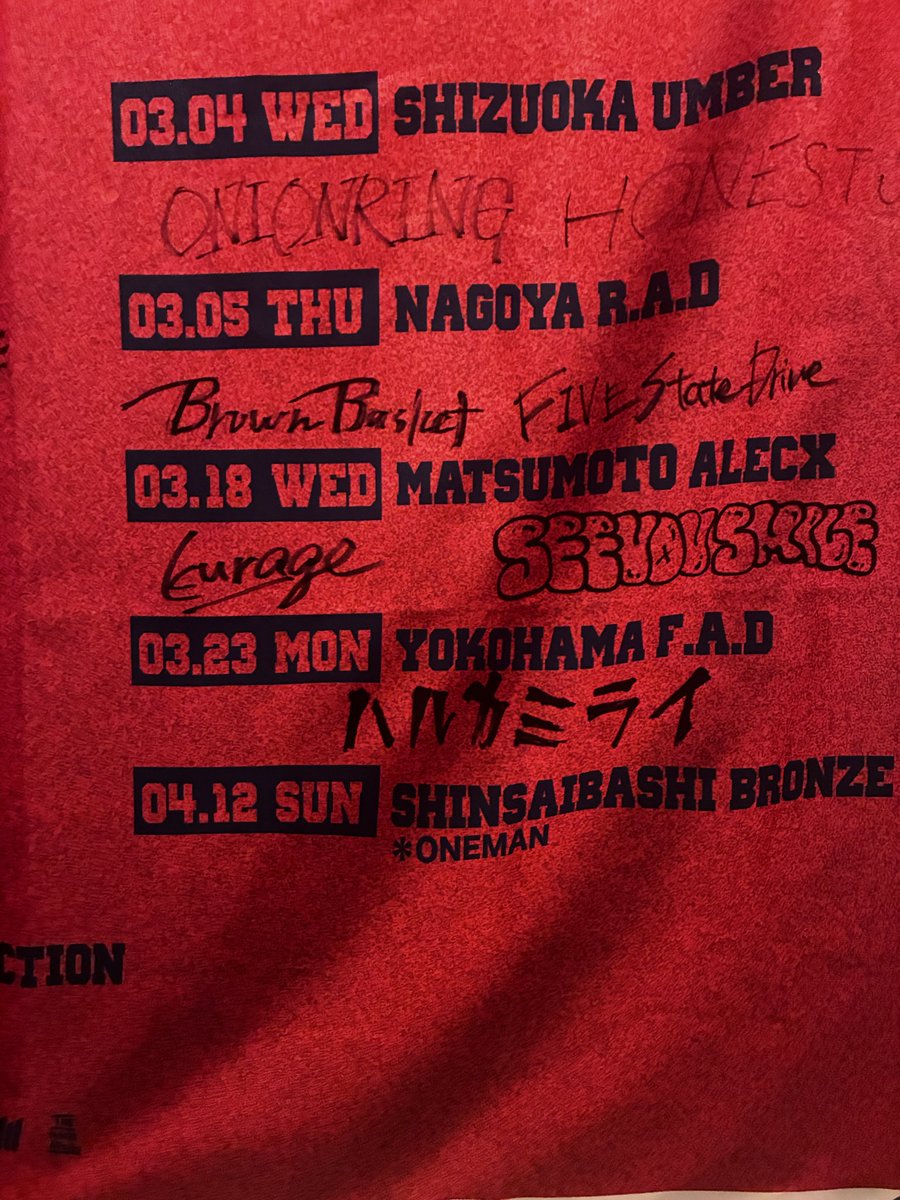 03.04 WED SHIZUOKA UMBER
ONIONRING HONEST
03.05 THU NAGOYA R.A.D
Brown Basket FIVE State Drive
03.18 WED MATSUMOTO ALECX
Eurage SEEYOUSMILE
03.23 MON YOKOHAMA F.A.D
ハルカミライ
04.12 SUN SHINSAIBASHI BRONZE
*ONEMAN
CTION